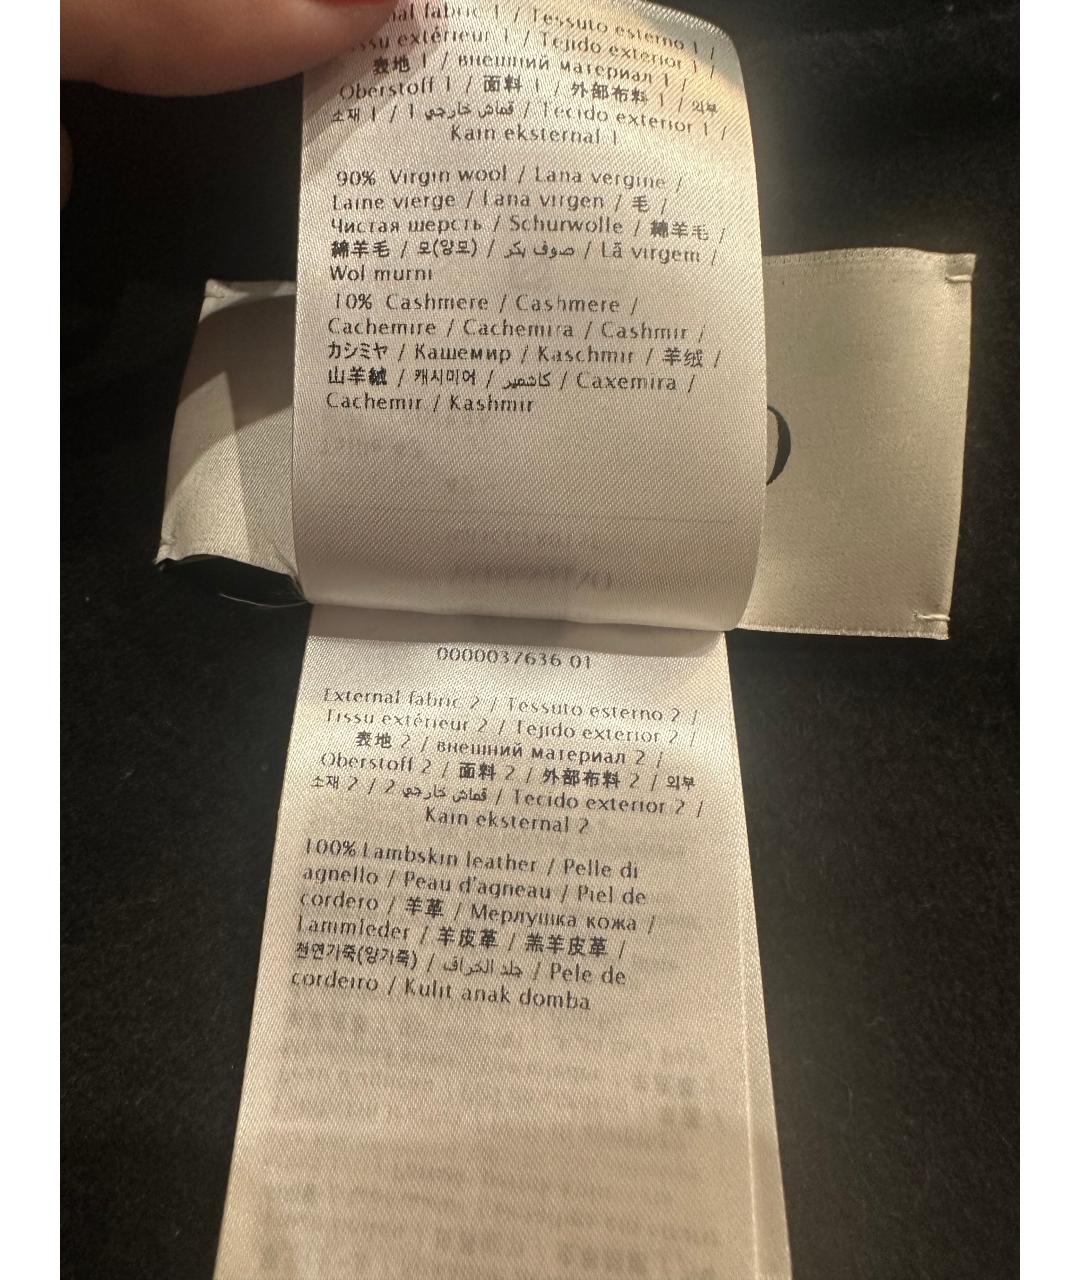 nal fabric 1 / Tessuto esterno 1 /
ssu extérieur 1 / Tejido exterior 1 /
表地 1 / внешний материал 1 /
Oberstoff 1 / 面料 1 / 外部布料 1 / 외부
소재 1 / قماش خارجي 1 / Tecido exterior 1 /
Kain eksternal 1
90% Virgin wool / Lana vergine /
Laine vierge / Lana virgen / 毛 /
Чистая шерсть / Schurwolle / 綿羊毛 /
綿羊毛 / 모(양모) / صوف بكر / Lã virgem /
Wol murni
10% Cashmere / Cashmere /
Cachemire / Cachemira / Cashmir /
カシミヤ / Кашемир / Kaschmir / 羊绒 /
山羊絨 / 캐시미어 / كاشمير / Caxemira /
Cachemir / Kashmir
0000037636 01
External fabric 2 / Tessuto esterno 2 /
Tissu extérieur 2 / Tejido exterior 2 /
表地 2 / внешний материал 2 /
Oberstoff 2 / 面料 2 / 外部布料 2 / 외부
소재 2 / قماش خارجي 2 / Tecido exterior 2 /
Kain eksternal 2
100% Lambskin leather / Pelle di
agnello / Peau d'agneau / Piel de
cordero / 羊革 / Мерлушка кожа /
Lammleder / 羊皮革 / 羔羊皮革 /
천연가죽(양가죽) / جلد الخراف / Pele de
cordeiro / Kulit anak domba